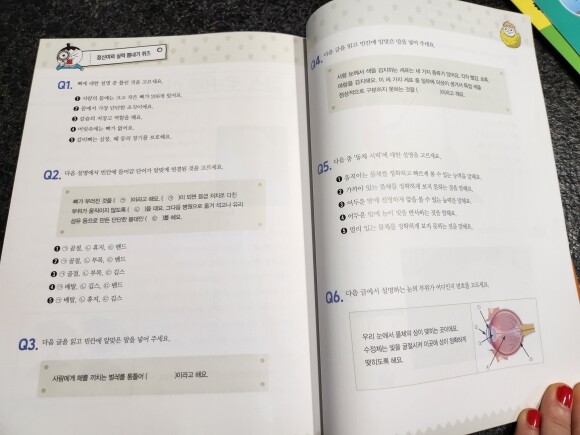 정신이의 실력 뽐내기 퀴즈
Q1. 뼈에 대한 설명 중 틀린 것을 고르세요.
❶ 사람의 몸에는 크고 작은 뼈가 206개 있어요.
❷ 몸에서 가장 단단한 조직이에요.
❸ 칼슘의 저장고 역할을 해요.
❹ 머릿속에는 뼈가 없어요.
❺ 갈비뼈는 심장, 폐 등의 장기를 보호해요.
Q2. 다음 설명에서 빈칸에 들어갈 단어가 알맞게 연결된 것을 고르세요.
뼈가 부러진 것을 ( ㉠ )이라고 해요. ( ㉠ )이 되면 응급 처치로 다친
부위가 움직이지 않도록 ( ㉡ )를 대요. 그다음 병원으로 옮겨 석고나 유리
섬유 등으로 만든 단단한 붕대인 ( ㉢ )를 해요.
❶ ㉠ 골절, ㉡ 휴지, ㉢ 밴드
❷ ㉠ 골절, ㉡ 부목, ㉢ 밴드
❸ ㉠ 골절, ㉡ 부목, ㉢ 깁스
❹ ㉠ 배탈, ㉡ 깁스, ㉢ 밴드
❺ ㉠ 배탈, ㉡ 휴지, ㉢ 깁스
Q3. 다음 글을 읽고 빈칸에 알맞은 말을 넣어 주세요.
사람에게 해를 끼치는 벌레를 통틀어 ( )이라고 해요.
Q4. 다음 글을 읽고 빈칸에 알맞은 말을 넣어 주세요.
사람 눈에서 색을 감지하는 세포는 세 가지 종류가 있어요. 각각 빨강, 초록,
파랑을 감지해요. 이 세 가지 세포 중 일부에 이상이 생겨서 특정 색을
정상적으로 구분하지 못하는 것을 ( )이라고 해요.
Q5. 다음 중 '동체 시력'에 대한 설명을 고르세요.
❶ 움직이는 물체를 정확하고 빠르게 볼 수 있는 능력을 말해요.
❷ 가까이 있는 물체를 정확하게 보지 못하는 것을 말해요.
❸ 어두운 밤에 선명하게 앞을 볼 수 있는 능력을 말해요.
❹ 어두운 밤에 눈이 빛을 반사하는 것을 말해요.
❺ 멀리 있는 물체를 정확하게 보지 못하는 것을 말해요.
Q6. 다음 글에서 설명하는 눈의 부위가 어디인지 번호를 고르세요.
우리 눈에서 물체의 상이 맺히는 곳이에요.
수정체는 빛을 굴절시켜 이곳에 상이 정확하게
맺히도록 해요.